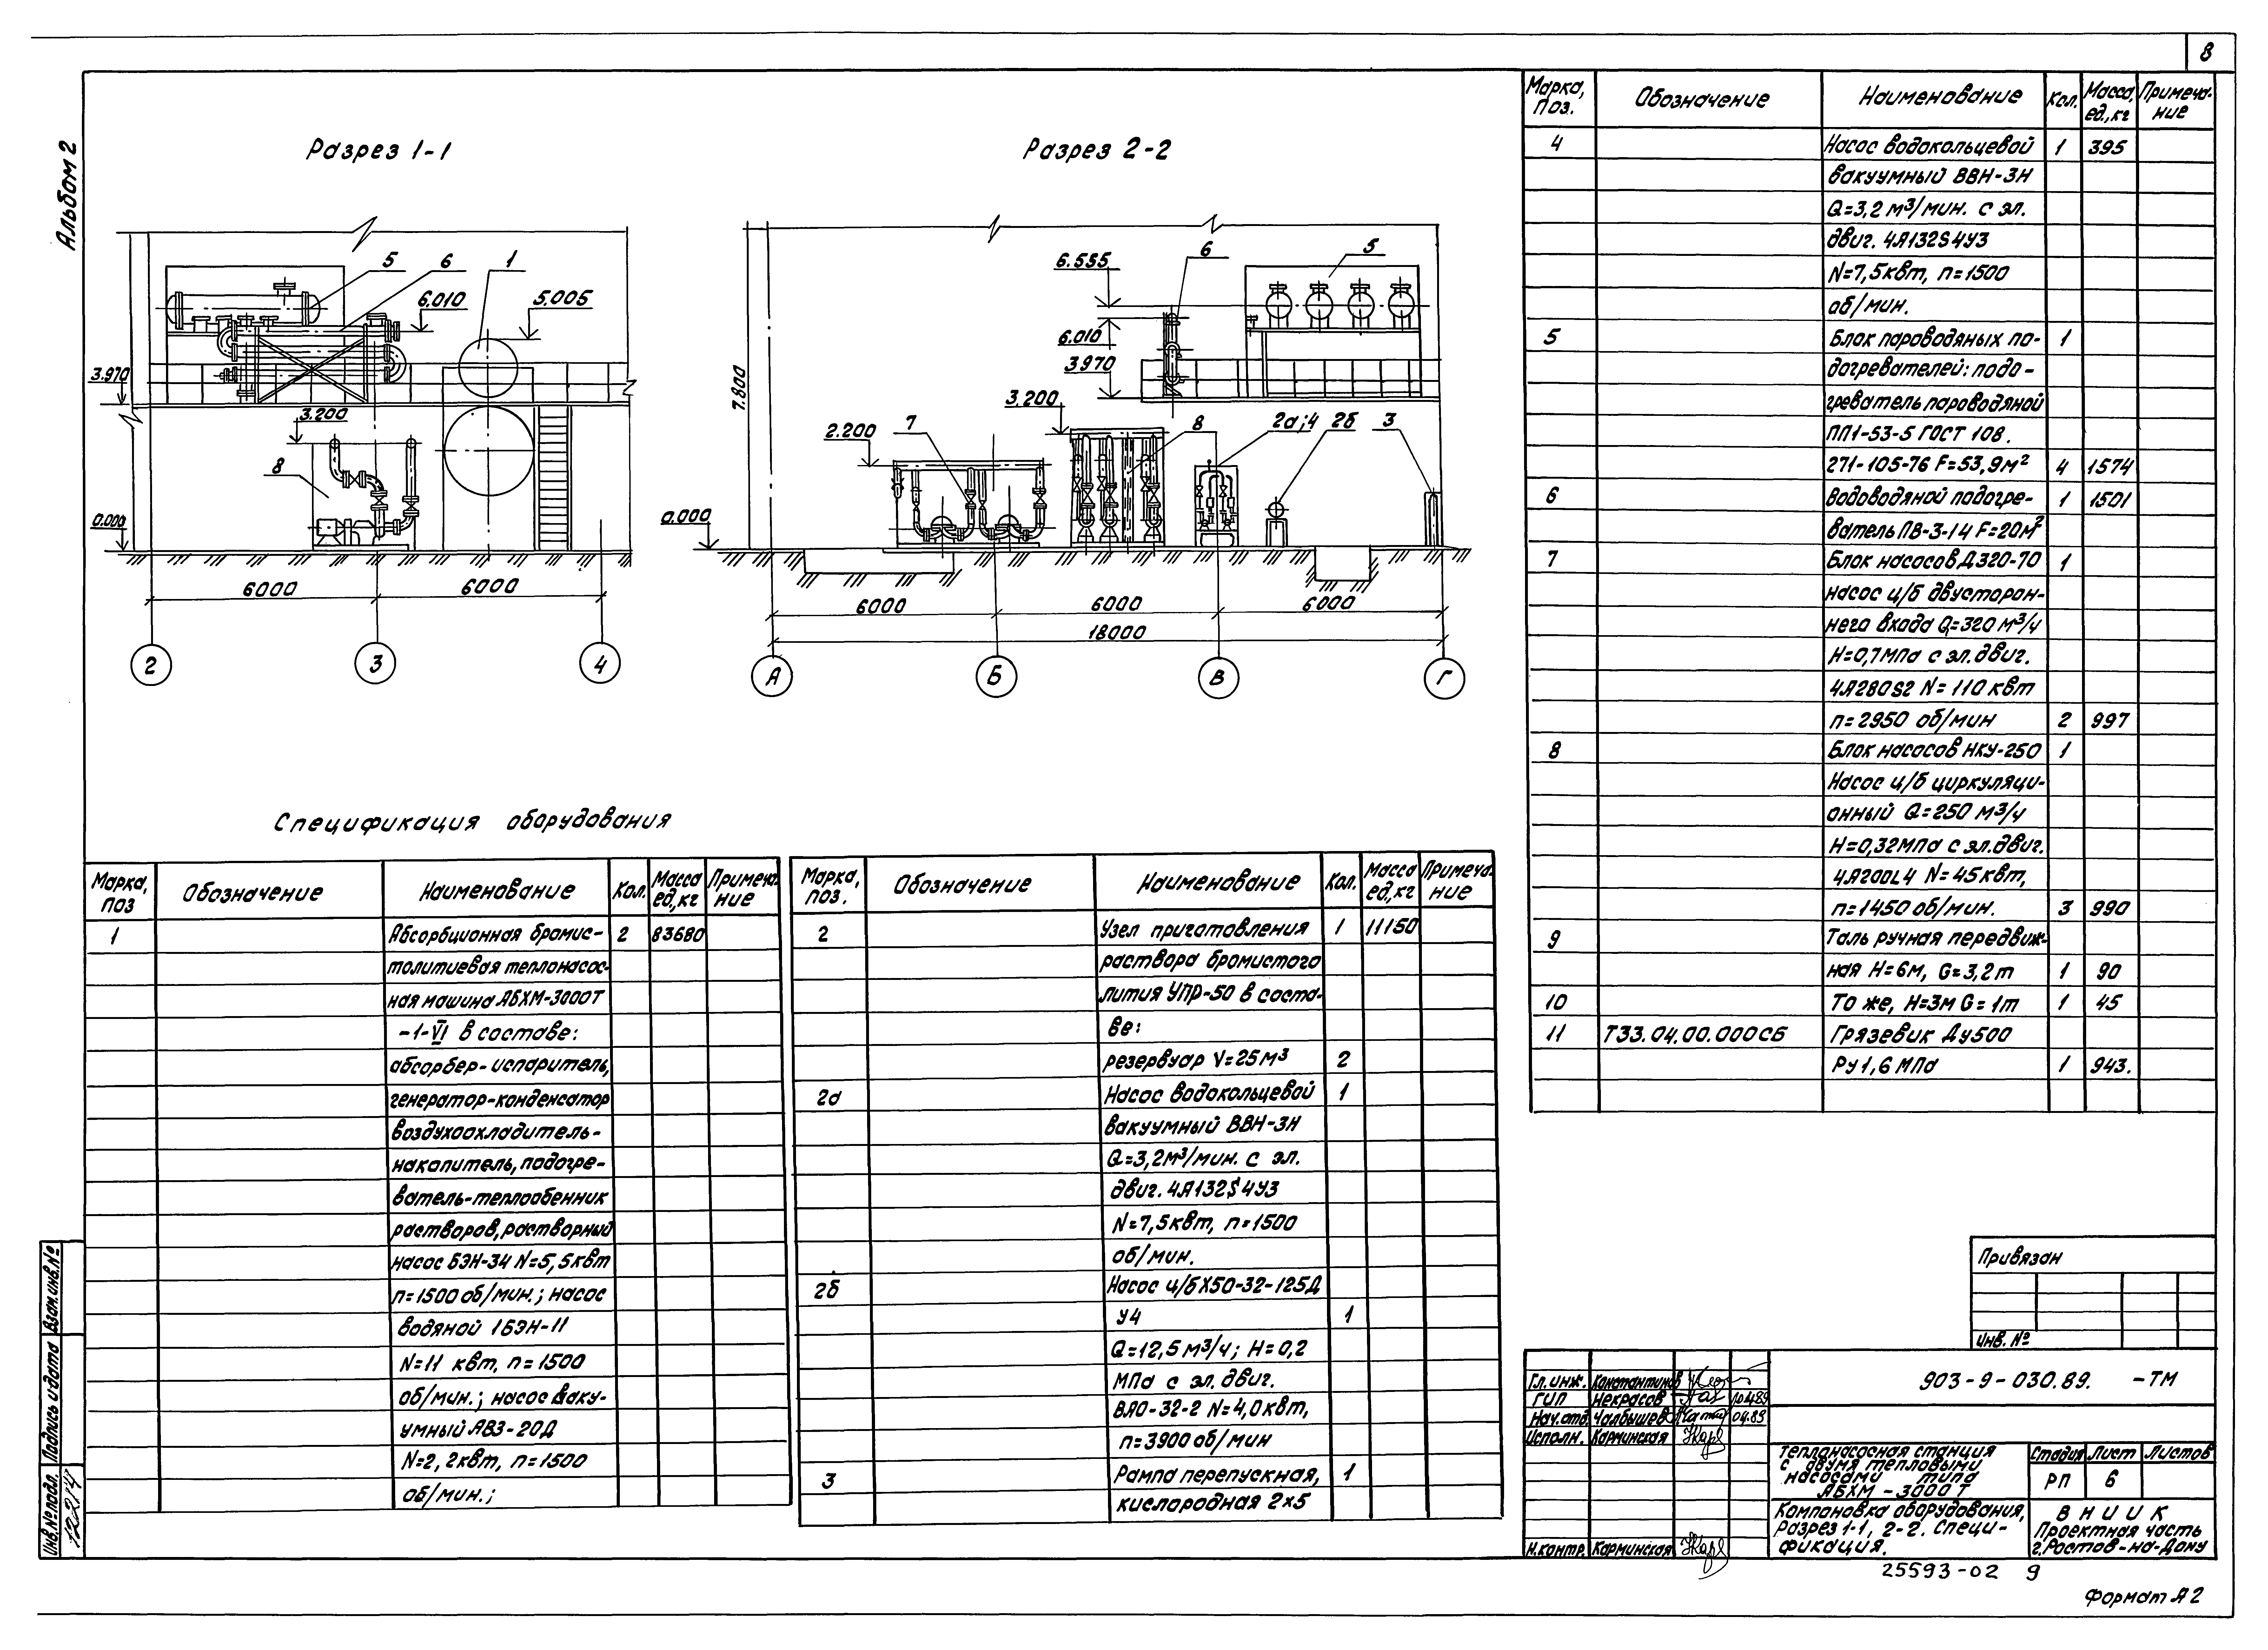 8
Альбом 2
Разрез 1-1
5
6
1
6.010
5.005
3.970
3.200
8
0.000
6000
6000
2
3
4
Разрез 2-2
6.555
6
5
6.010
3.970
7.800
3.200
2.200
7
8
2а;4
2б
3
0.000
6000
6000
6000
18000
А
Б
В
Г
Спецификация оборудования
Марка, поз
Обозначение
Наименование
Кол.
Масса ед,кг
Примеча-ние
1
Абсорбционная бромис-
2
83680
толитиевая теплонасос-
ная машина АБХМ-3000Т
-1-VI в составе:
абсорбер-испаритель,
генератор-конденсатор
воздухоохладитель-
накопитель, подогре-
ватель-теплообенник
растворов, растворный
насос БЭН-34 N=5,5квт
n=1500 об/мин.; насос
водяной 1БЭН-11
N=11 квт, n=1500
об/мин.; насос ваку-
умный АВЗ-20Д
N=2,2квт, n=1500
об/мин.;
Марка, поз.
Обозначение
Наименование
Кол.
Масса ед,кг
Примеча-ние
2
Узел приготовления
1
11150
раствора бромистого
лития УПР-50 в соста-
ве:
резервуар V=25м³
2
2а
Насос водокольцевой
1
вакуумный ВВН-3Н
Q=3,2м³/мин. с эл.
двиг. 4А132S4У3
N=7,5квт, n=1500
об/мин.
2б
Насос ц/б Х50-32-125Д
У4
1
Q=12,5 м³/ч; H=0,2
МПа с эл. двиг.
ВАО-32-2 N=4,0квт,
n=3900 об/мин
3
Рампа перепускная,
1
кислородная 2х5
Марка, поз.
Обозначение
Наименование
Кол.
Масса, ед.,кг
Примеча-ние
4
Насос водокольцевой
1
395
вакуумный ВВН-3Н
Q=3,2 м³/мин. с эл.
двиг. 4А132S4У3
N=7,5квт, n=1500
об/мин.
5
Блок пароводяных по-
1
догревателей: подо-
греватель пароводяной
ПП1-53-5 ГОСТ 108.
271-105-76 F=53,9м²
4
1574
6
Водоводяной подогре-
1
1501
ватель ПВ-3-14 F=20м²
7
Блок насосов Д320-70
1
насос ц/б двусторон-
него входа Q=320 м³/ч
H=0,7МПа с эл.двиг.
4А280S2 N=110 квт
n=2950 об/мин
2
997
8
Блок насосов НКУ-250
1
Насос ц/б циркуляци-
онный Q=250 м³/ч
H=0,32МПа с эл.двиг.
4А200L4 N=45квт,
n=1450 об/мин.
3
990
9
Таль ручная передвиж-
ная H=6м, G=3,2т
1
90
10
То же, H=3м G=1т
1
45
11
ТЗ3.04.00.000СБ
Грязевик Ду500
Ру 1,6 МПа
1
943.
Привязан
Инв. №
Гл.инж.
Константинов
ГИП
Некрасов
Нач.отд.
Чалбышев
04.89
Исполн.
Карминская
Н.контр.
Карминская
903-9-030.89. -ТМ
Теплонасосная станция
с двумя тепловыми
насосами типа
АБХМ-3000Т
Стадия
Лист
Листов
РП
6
Компановка оборудования,
Разрез 1-1, 2-2. Специ-
фикация.
ВНИИК
Проектная часть
г.Ростов-на-Дону
25593-02
9
Формат А2
Взам.инв.№
Подпись и дата
Инв.№ подл.